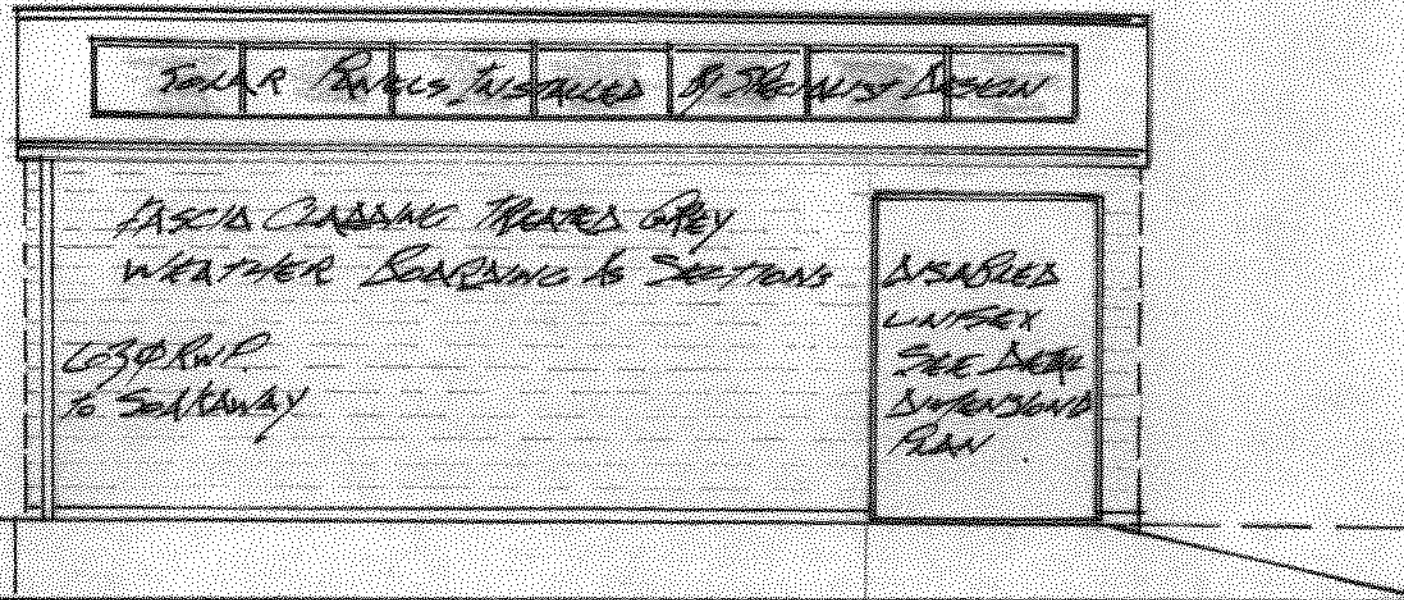 SOLAR PANELS INSTALLED BY SPECIALIST DESIGN
FASCIA CLADDING TREATED GREY
WEATHER BOARDING AS SECTIONS
63Ø RWP.
TO SOAKAWAY
DISABLED
UNISEX
SEE DETAIL
DIMENSIOND
PLAN